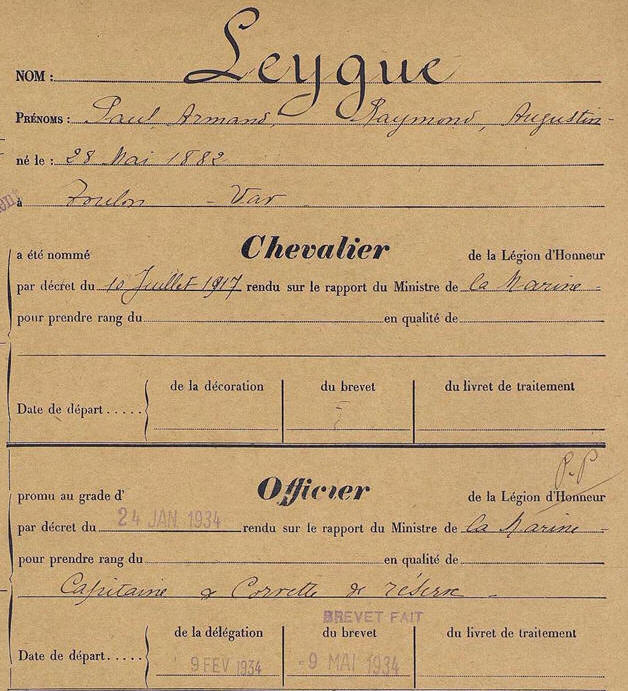 NOM : Leygue
PRÉNOMS : Paul, Armand, Raymond, Augustin
né le : 28 Mai 1882
à Toulon - Var
a été nommé Chevalier de la Légion d'Honneur
par décret du 10 Juillet 1917 rendu sur le rapport du Ministre de la Marine
pour prendre rang du en qualité de
de la décoration du brevet du livret de traitement
Date de départ .....
P.P
promu au grade d' Officier de la Légion d'Honneur
par décret du 24 JAN 1934 rendu sur le rapport du Ministre de la Marine
pour prendre rang du en qualité de
Capitaine de Corvette de réserve
BREVET FAIT
de la délégation du brevet du livret de traitement
Date de départ ..... 9 FEV 1934 - 9 MAI 1934